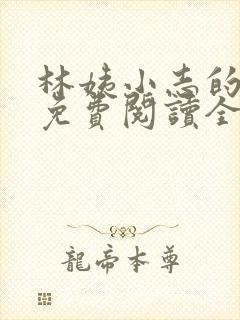 林姨小志的
免費閱讀全
龍帝本尊